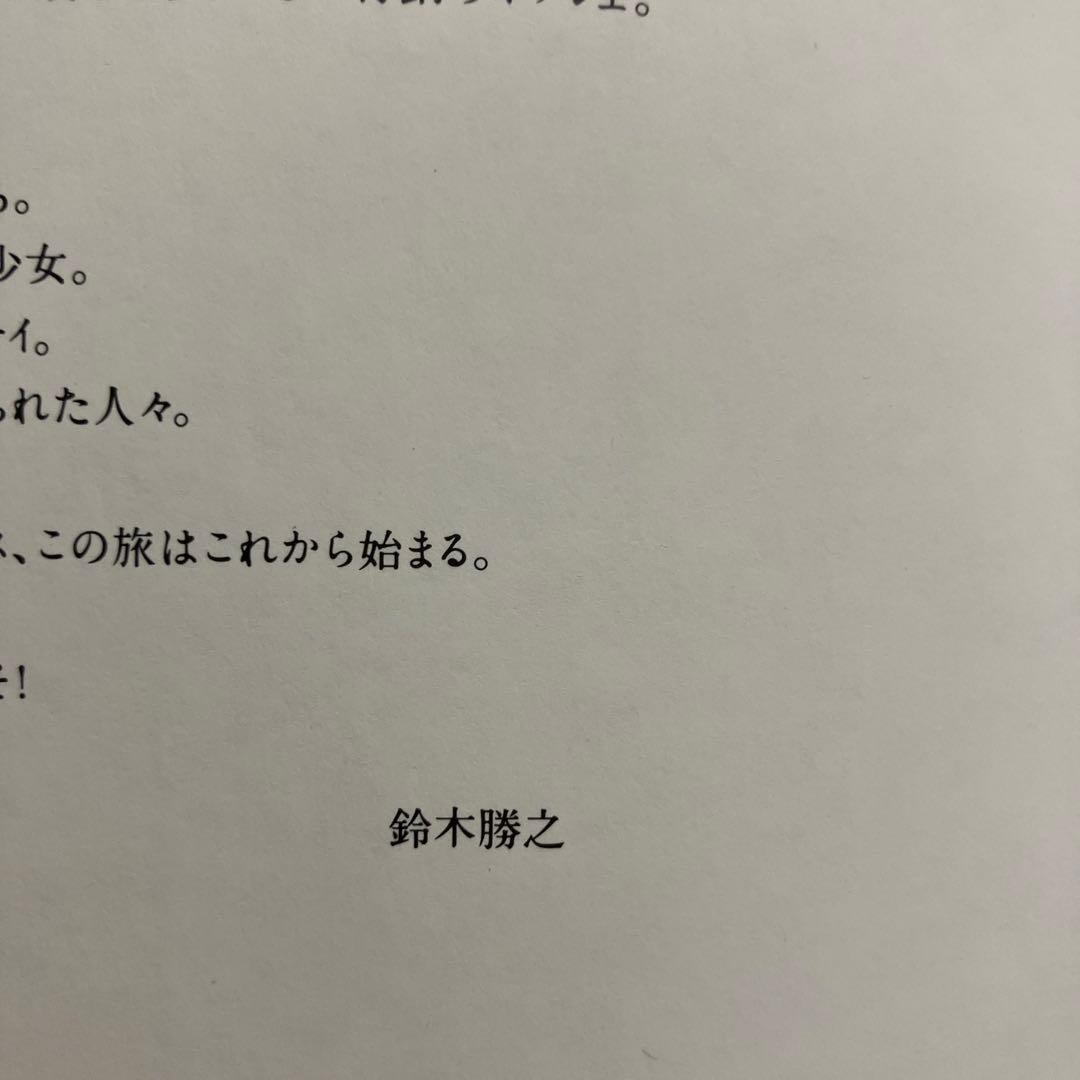 。
少女。
イ。
られた人々。
、この旅はこれから始まる。
そ！
鈴木勝之